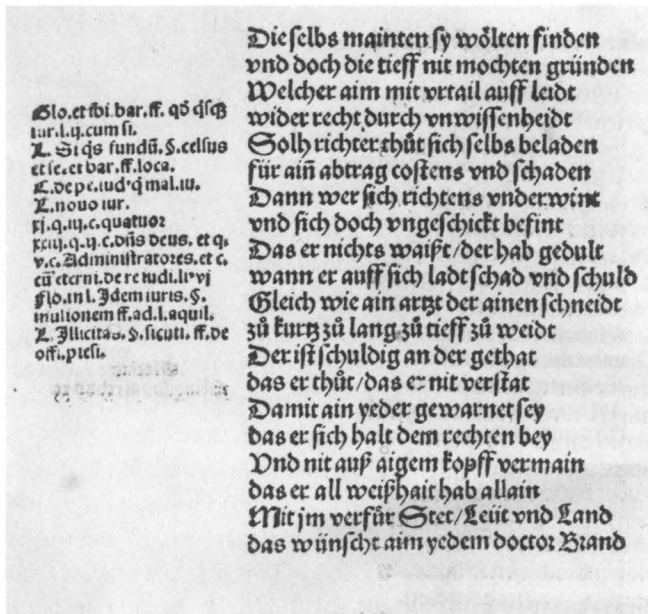 Glo. et ibi bar. ff. qđ qſqꝫ
iur. l. ij. cum ſi.
L. Si q̃s fundũ. §. celſus
et ſc. et bar. ff. loca.
C. de pe. iud' q̃ mal. iu.
L. nouo iur.
xj. q. iij. c. quatuor
xxiij. q. ij. c. dñs deus. et q.
v. c. Adminiſtratores. et c.
cũ eterni. de re iudi. li° vj
flo. in l. Idem iuris. §.
mulionem ff. ad. l. aquil.
L. Illicitas. §. ſicuti. ff. de
offi. preſi.
Die ſelbs mainten ſy wölten finden
vnd doch die tieff nit mochten gründen
Welcher aim mit vrtail auff leidt
wider recht durch vnwiſſenheidt
Solh richter thůt ſich ſelbs beladen
für ain̄ abtrag coſtens vnd ſchaden
Dann wer ſich richtens vnderwint
vnd ſich doch vngeſchickt befint
Das er nichts waißt/der hab gedult
wann er auff ſich ladt ſchad vnd ſchuld
Gleich wie ain artzt der ainen ſchneidt
zů kurtz zů lang zů tieff zů weidt
Der iſt ſchuldig an der gethat
das er thůt/das er nit verſtat
Damit ain yeder gewarnet ſey
das er ſich halt dem rechten bey
Vnd nit auß aigem kopff vermain
das er all weißhait hab allain
Mit jm verfür Stet/Leüt vnd Land
das wünſcht aim yedem doctor Brand